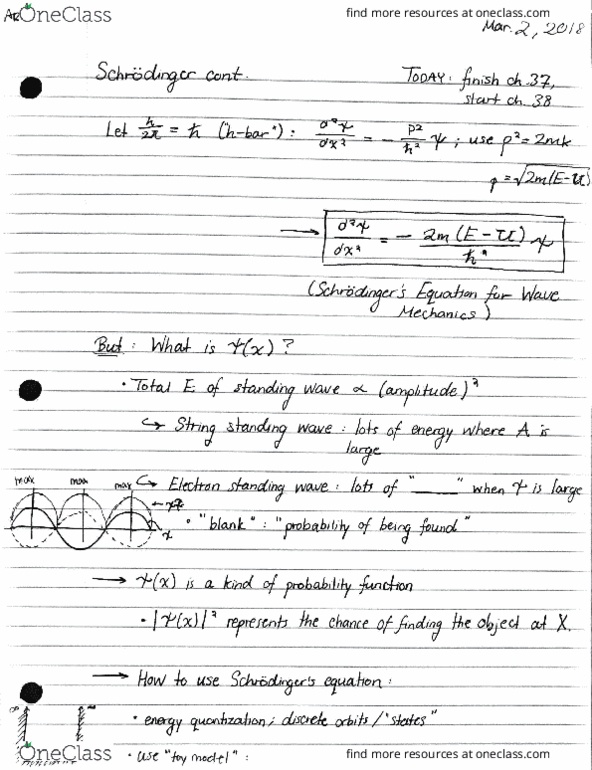 OneClass
find more resources at oneclass.com
Mar. 2, 2018
Schrödinger cont.
TODAY: finish ch. 37,
start ch. 38
Let h/2π = ħ ("h-bar"): d²ψ/dx² = - p²/ħ² ψ ; use p² = 2mk
p = √2m(E-U)
→ d²ψ/dx² = - 2m(E-U)/ħ² ψ
(Schrödinger's Equation for Wave
Mechanics)
But: What is ψ(x)?
• Total E of standing wave ∝ (amplitude)²
↳ String standing wave: lots of energy where A is
large
max max max
↳ Electron standing wave: lots of "____" when ψ is large
x
• "blank": "probability of being found"
→ ψ(x) is a kind of probability function
• |ψ(x)|² represents the chance of finding the object at X.
→ How to use Schrödinger's equation:
∞ ∞
• energy quantization; discrete orbits / "states"
• use "toy model":
OneClass
find more resources at oneclass.com